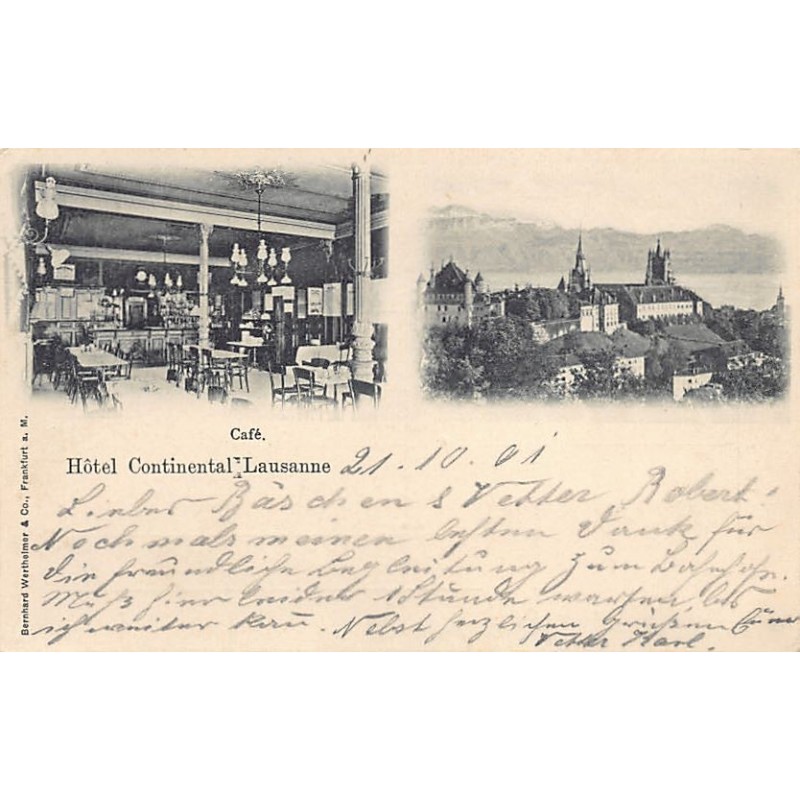 Café.
Hôtel Continental Lausanne 21.10.01
Liebes Bäschen & Vetter Robert!
Nochmals meinen besten Dank für
die freundliche Begleitung zum Bahnhofe.
Muss hier leider 1 Stunde warten, bis
ich weiter kan. Nebst herzlichen Grüssen Euer
Vetter Karl.
Bernhard Wertheimer & Co., Frankfurt a. M.